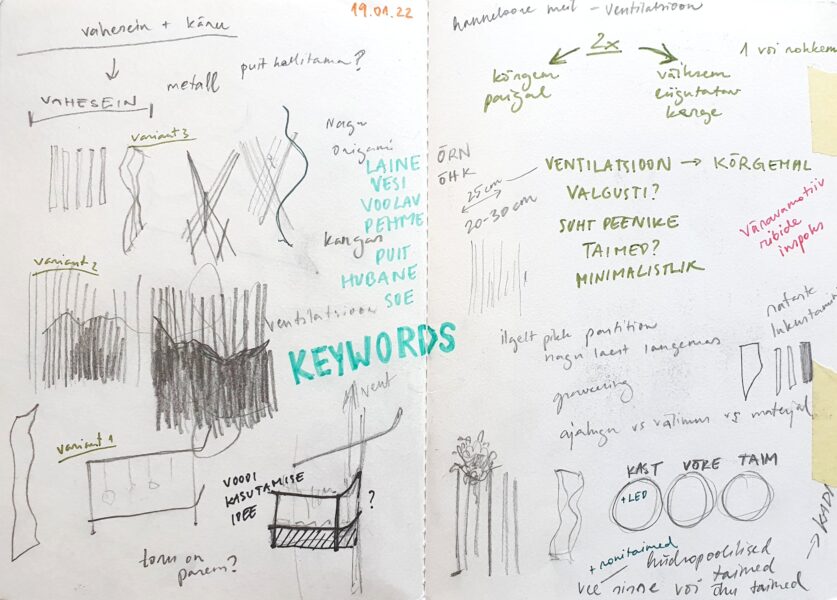 19.01.22
vahesein + känu
metall
puit hallitama?
VAHESEIN
variant 3
Nagu
origami
LAINE
VESI
VOOLAV
PEHME
kangas
PUIT
HUBANE
SOE
variant 2
ventilatsioon
KEYWORDS
vent
variant 1
VOODI
KASUTAMISE
IDEE
?
toru on
parem?
hanneloore meil - ventilatsioon
2x
1 või rohkem
kõrgem
väiksem
liigutatav
kerge
ÕRN
ÕHK
25 cm
20-30 cm
VENTILATSIOON → KÕRGEMAL
VALGUSTI?
SUHT PEENIKE
TAIMED?
MINIMALISTLIK
Väravamotiiv
ribide
inspoks
ilgelt pikk partition
nagu laest langemas
ajalugu vs välimus vs materjal
KAST
VÕRE
TAIM
+LED
+ ronitaimed
hüdropoolilised
taimed
vee sinne või õhu taimed